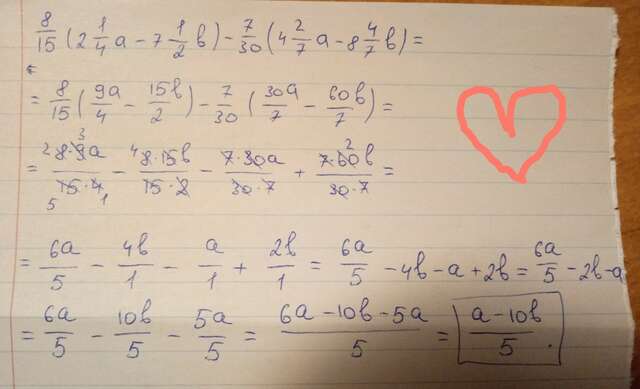 8/15 (2 1/4 a - 7 1/2 b) - 7/30 (4 2/7 a - 8 4/7 b) =
= 8/15 (9a/4 - 15b/2) - 7/30 (30a/7 - 60b/7) =
= 2 8·9a 3/15·4 5 1 - 4 8·15b/15·2 - 7·30a/30·7 + 7·60b 2/30·7 =
= 6a/5 - 4b/1 - a/1 + 2b/1 = 6a/5 - 4b - a + 2b = 6a/5 - 2b - a
= 6a/5 - 10b/5 - 5a/5 = (6a - 10b - 5a)/5 = (a - 10b)/5 .